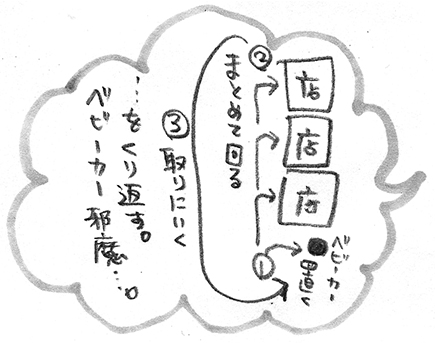 店
店
店
①
ベビーカー
置く
②
まとめて回る
③取りにいく
…をくり返す。
ベビーカー邪魔…。